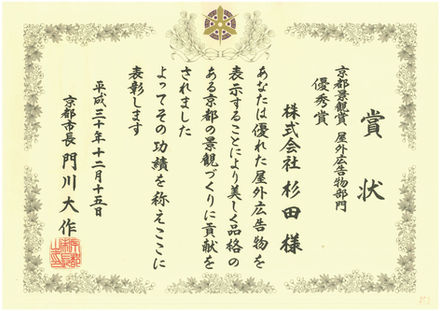 賞状
京都景観賞 屋外広告物部門
優秀賞
株式会社 杉田 様
あなたは優れた屋外広告物を
表示することにより美しく品格の
ある京都の景観づくりに貢献を
されました
よってその功績を称えここに
表彰します
平成三十年十二月十五日
京都市長 門川大作